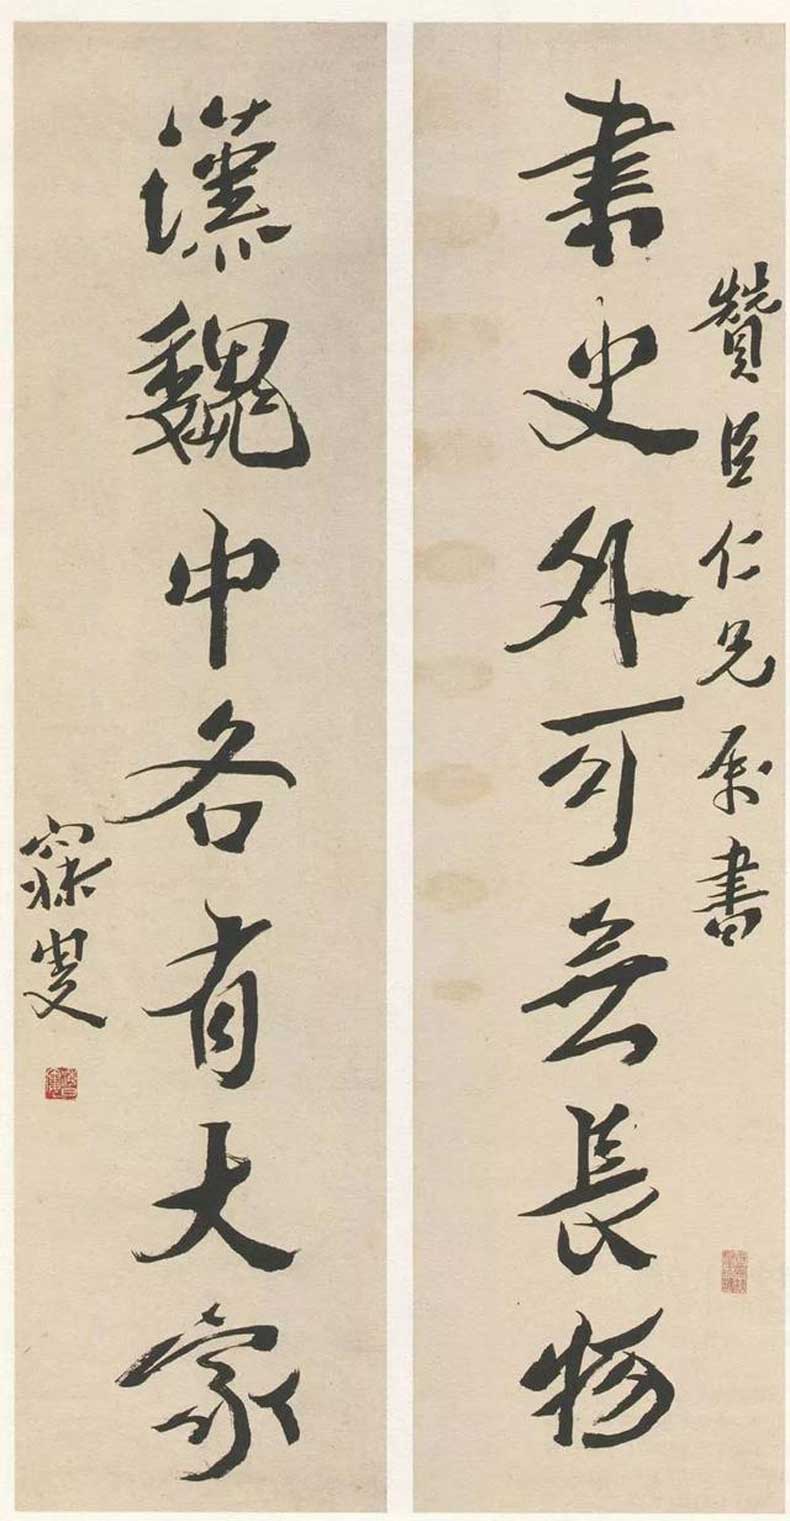 贊臣仁兄属書
書史外可無長物
漢魏中各有大家
寐叟